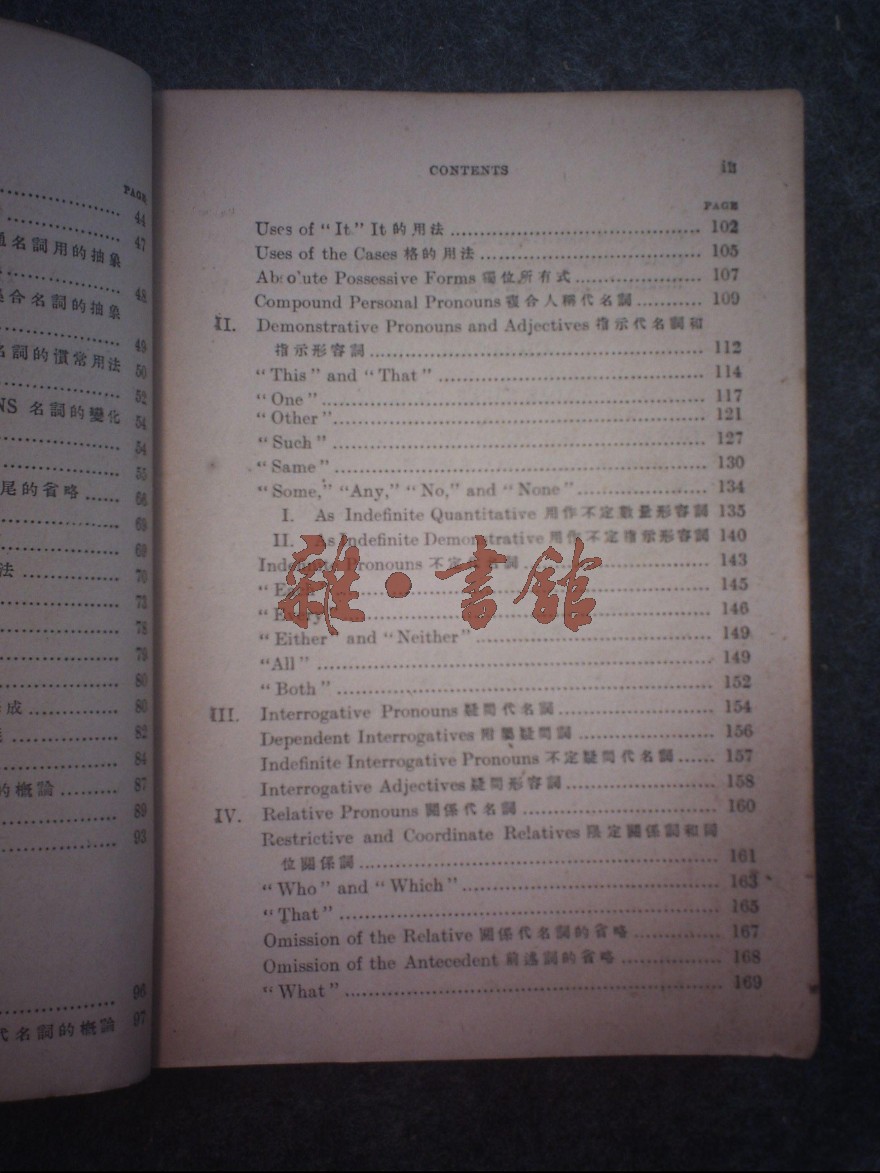 PAGE
44
47
通名詞用的抽象
48
集合名詞的抽象
49
名詞的慣常用法
50
52
NS 名詞的變化
54
54
55
尾的省略 ...... 66
69
69
法 ............ 70
73
78
79
80
成 ............ 80
82
84
的概論 ......... 87
89
93
96
代名詞的概論 97
CONTENTS iii
PAGE
Uses of “It” It 的用法 ........ 102
Uses of the Cases 格的用法 ........ 105
Absolute Possessive Forms 獨位所有式 ........ 107
Compound Personal Pronouns 複合人稱代名詞 ........ 109
II. Demonstrative Pronouns and Adjectives 指示代名詞和
指示形容詞 ........ 112
“This” and “That” ........ 114
“One” ........ 117
“Other” ........ 121
“Such” ........ 127
“Same” ........ 130
“Some,” “Any,” “No,” and “None” ........ 134
I. As Indefinite Quantitative 用作不定數量形容詞 135
II. As Indefinite Demonstrative 用作不定指示形容詞 140
Indefinite Pronouns 不定代名詞 ........ 143
“Each” ........ 145
“Every” ........ 146
“Either” and “Neither” ........ 149
“All” ........ 149
“Both” ........ 152
III. Interrogative Pronouns 疑問代名詞 ........ 154
Dependent Interrogatives 附屬疑問詞 ........ 156
Indefinite Interrogative Pronouns 不定疑問代名詞 ...... 157
Interrogative Adjectives 疑問形容詞 ........ 158
IV. Relative Pronouns 關係代名詞 ........ 160
Restrictive and Coordinate Relatives 限定關係詞和同
位關係詞 ........ 161
“Who” and “Which” ........ 163
“That” ........ 165
Omission of the Relative 關係代名詞的省略 ........ 167
Omission of the Antecedent 前述詞的省略 ........ 168
“What” ........ 169
雜·書館